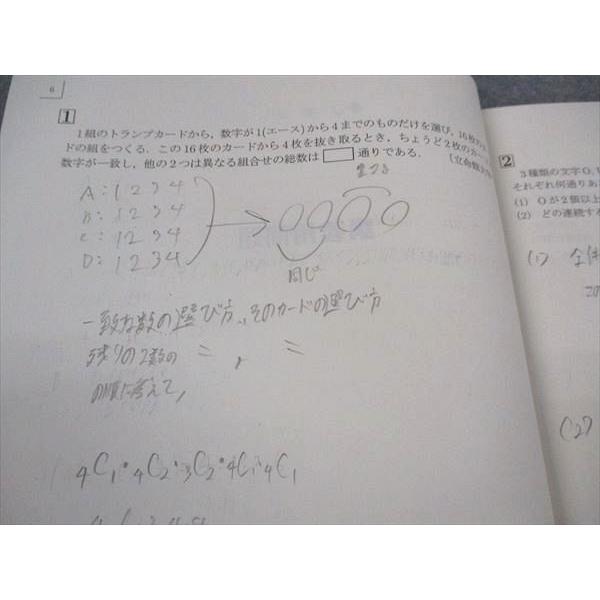 6
1
1組のトランプカードから，数字が1(エース)から4までのものだけを選び，16枚の
ドの組をつくる．この16枚のカードから4枚を抜き取るとき，ちょうど2枚のカー
数字が一致し，他の2つは異なる組合せの総数は 通りである．
A:1 2 3 4
B:1 2 3 4
C:1 2 3 4
D:1 2 3 4
同じ
一致な数の選び方、そのカードの選び方
残りの2数の 〃 , 〃
の順に考えて,
4C1・4C2・3C2・4C1・4C1
2
3種類の文字O,
それぞれ何通りあ
(1) Oが2個以上
(2) どの連続す
(1) 全体
(2)